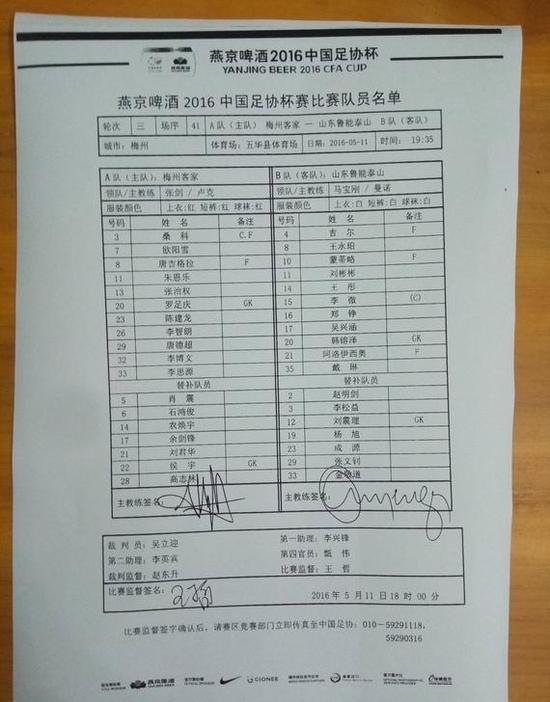 燕京啤酒2016中国足协杯
YANJING BEER 2016 CFA CUP
燕京啤酒 2016 中国足协杯赛比赛队员名单
轮次 三 场序 41 A队(主队) 梅州客家 — 山东鲁能泰山 B队(客队)
城市: 梅州 体育场: 五华县体育场 日期: 2016-05-11 时间: 19:35
A队(主队): 梅州客家 B队(客队): 山东鲁能泰山
领队/主教练 张剑 / 卢克 领队/主教练 马宝刚 / 曼诺
服装颜色 上衣:红 短裤:红 球袜:红 服装颜色 上衣:白 短裤:白 球袜:白
号码 姓名 备注 号码 姓名 备注
3 桑科 C.F 4 吉尔 F
7 欧阳雪 8 王永珀
8 唐吉格拉 F 10 蒙蒂略 F
11 朱恩乐 11 刘彬彬
13 张治权 14 王彤
20 罗足庆 GK 15 李微 (C)
23 陈建龙 16 郑铮
26 李智朗 17 吴兴涵
29 唐德超 20 韩镕泽 GK
32 李博文 21 阿洛伊西奥 F
33 李思源 35 戴琳
替补队员 替补队员
5 肖震 2 赵明剑
6 石鸿俊 3 李松益
14 衣焕宇 12 刘震理 GK
17 余剑锋 19 杨旭
21 刘君华 23 成源
22 侯宇 GK 29 张文钊
28 高志林 33 金敬道
主教练签名: 主教练签名:
裁判员: 吴立迎 第一助理: 李兴锋
第二助理: 李英宾 第四官员: 甄伟
裁判监督: 赵东升 比赛监督: 王哲
比赛监督签名: 2016 年 5 月 11 日 18 时 00 分
比赛监督签字确认后，请赛区竞赛部门立即传真至中国足协: 010-59291118,
59290316
燕京啤酒 GIONEE